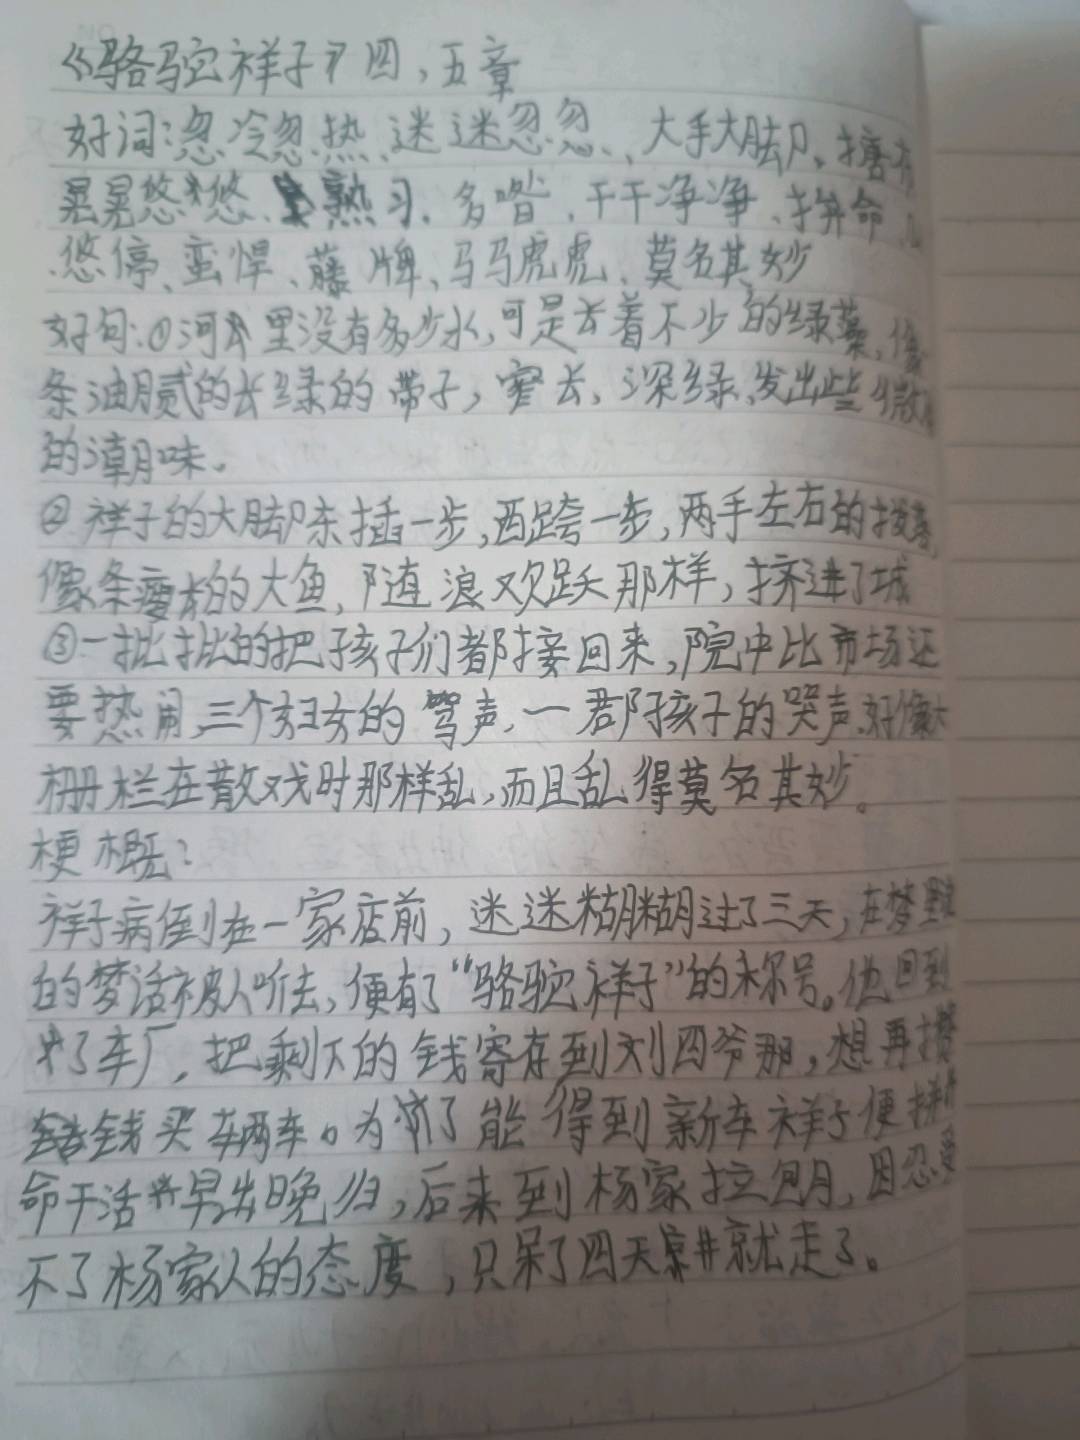 《骆驼祥子》四，五章
好词：忽冷忽热、迷迷忽忽、大手大脚、搪布
晃晃悠悠、熟习、多嘴、干干净净、拼命、
悠停、蛮悍、藤牌、马马虎虎、莫名其妙
好句：①河里没有多少水，可是长着不少的绿藻，像
条油腻的长绿的带子，窄长，深绿，发出些微
的潮味。
②祥子的大脚东插一步，西跨一步，两手左右的拨落，
像条瘦长的大鱼，随浪欢跃那样，挤进了城
③一批批的把孩子们都接回来，院中比市场还
要热闹，三个妇女的骂声，一群孩子的哭声，好像大
栅栏在散戏时那样乱，而且乱得莫名其妙。
梗概：
祥子病倒在一家店前，迷迷糊糊过了三天，在梦里
的梦话被人听去，便有了“骆驼祥子”的称号。他回到
了车厂，把剩下的钱寄存到刘四爷那，想再攒
钱买辆车。为了能得到新车祥子便拼
命干活早出晚归，后来到杨家拉包月，因忍受
不了杨家人的态度，只呆了四天就走了。